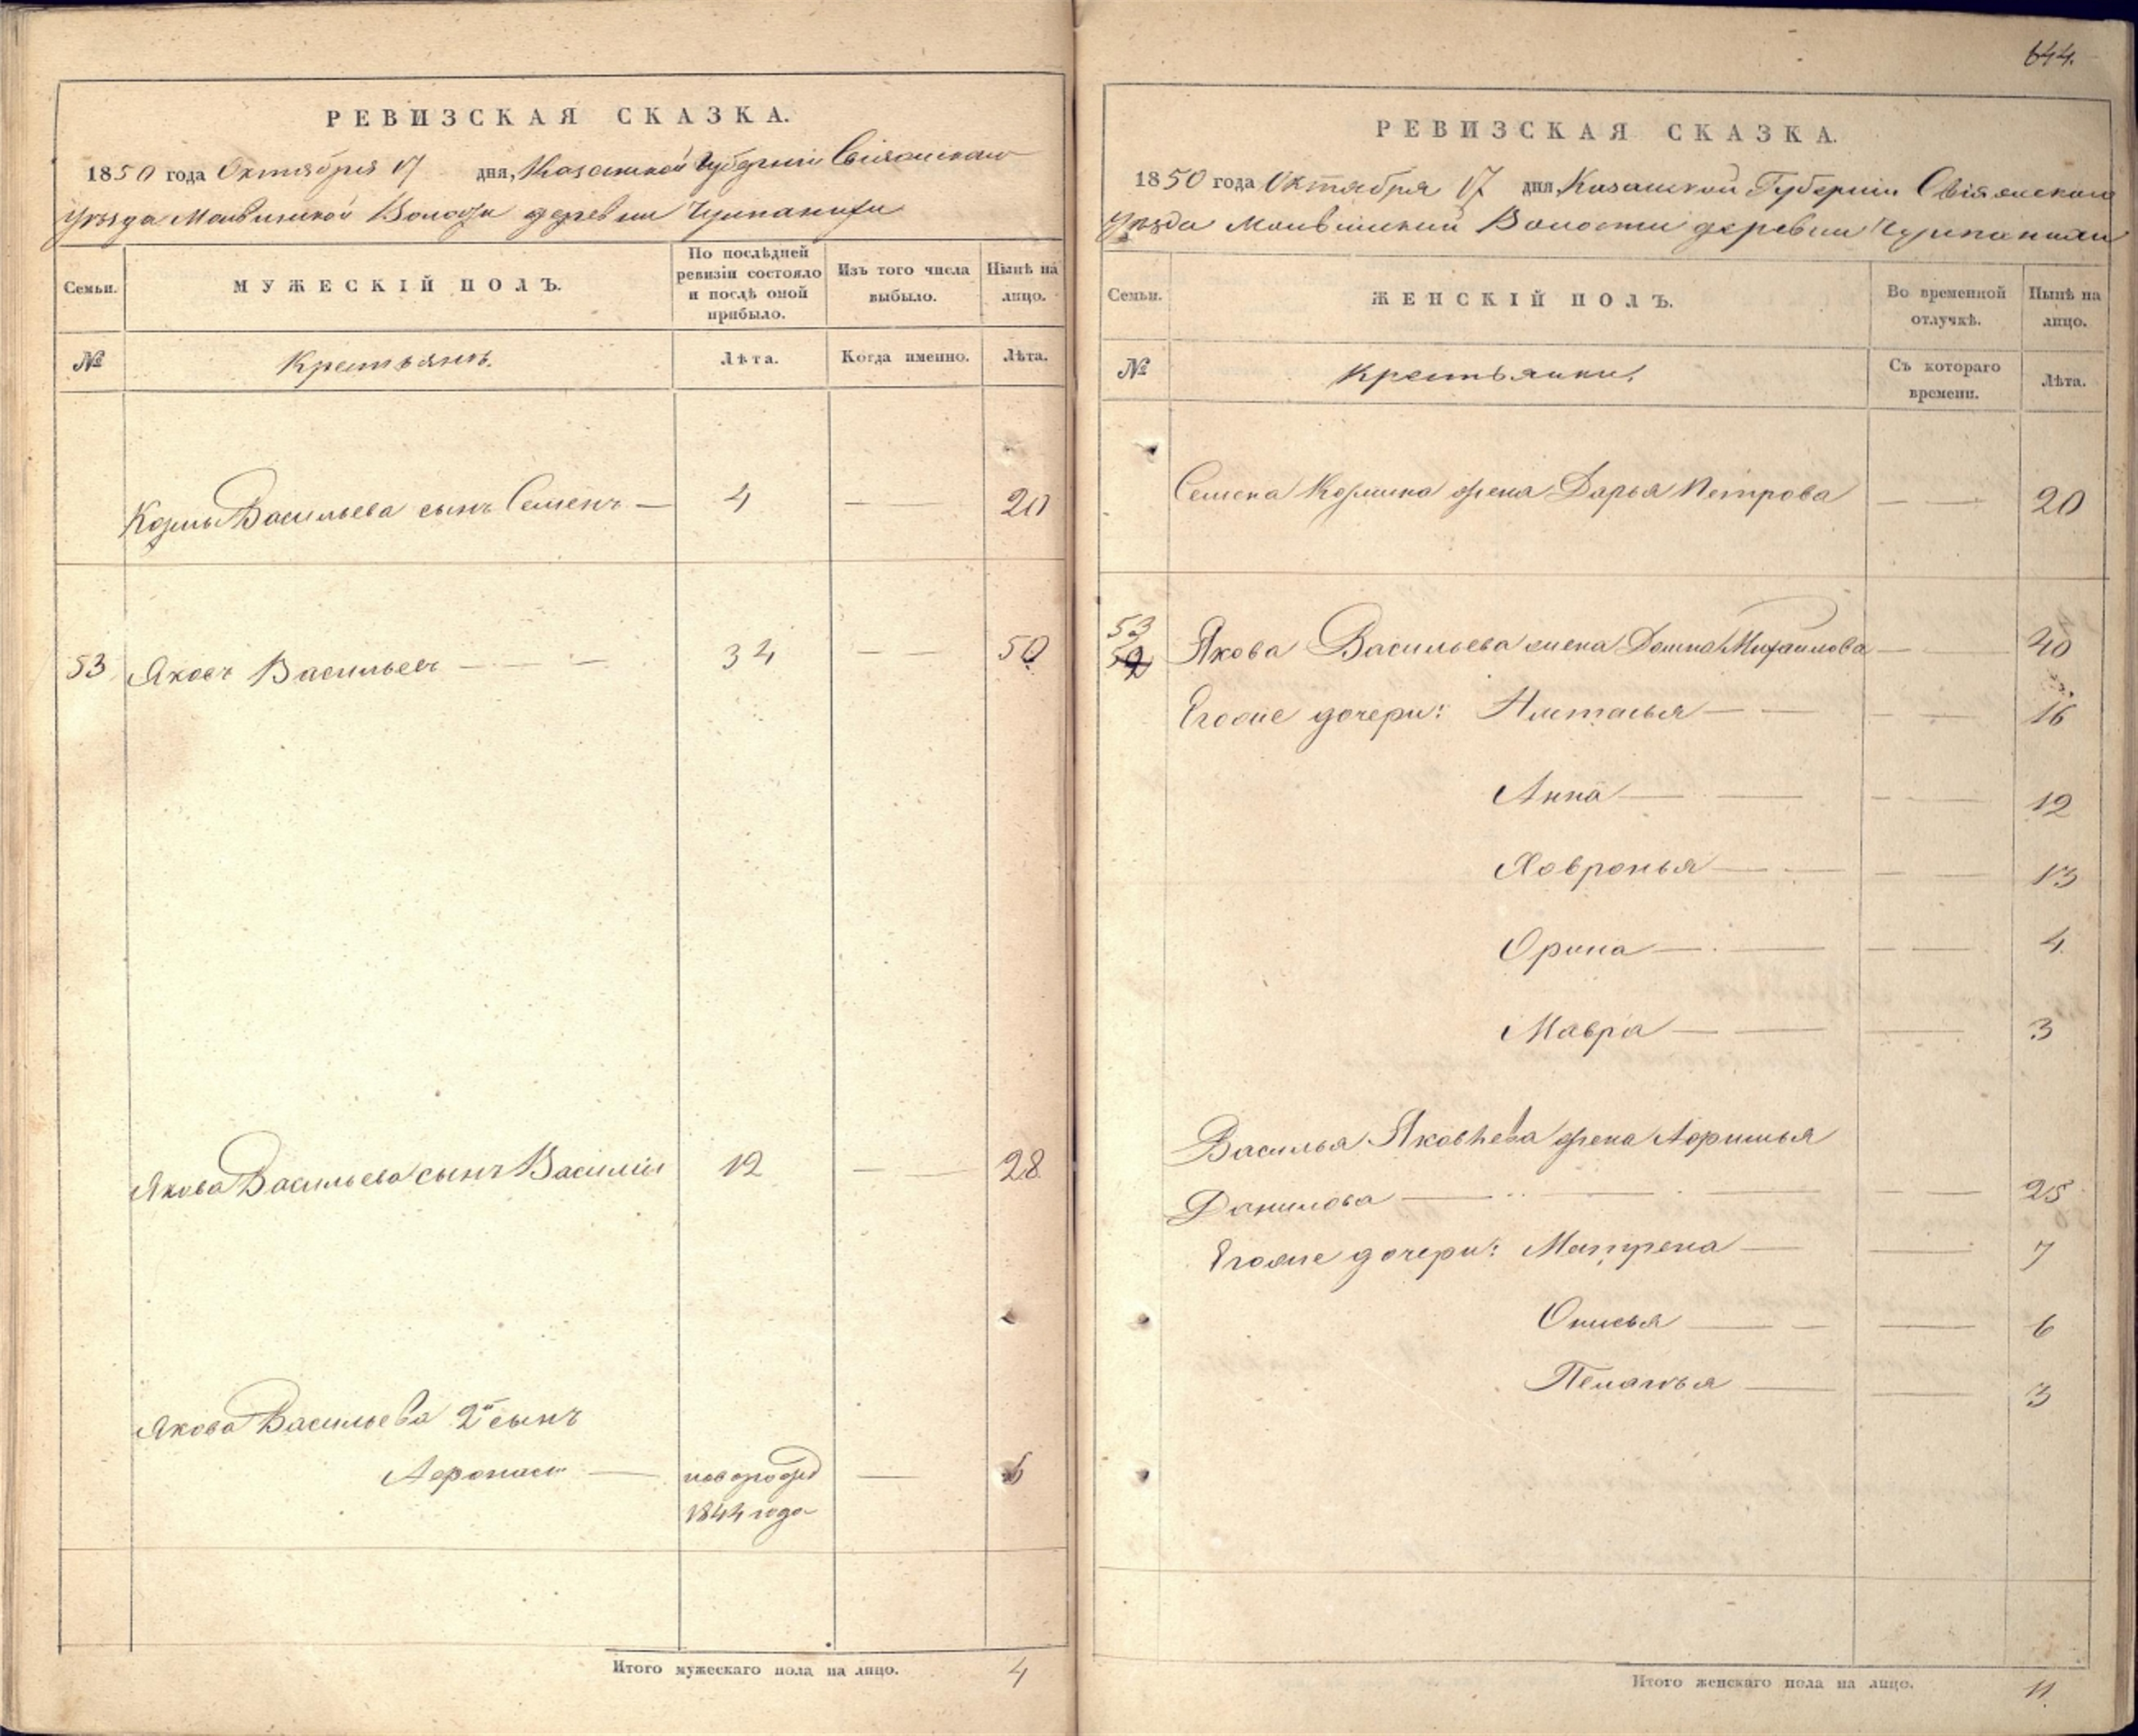 РЕВИЗСКАЯ СКАЗКА.
1850 года Октября 17 дня, Казанской Губернии Свіяжскаго
Уѣзда Волости деревни
Семьи.
МУЖЕСКІЙ ПОЛЪ.
По послѣдней ревизіи состояло и послѣ оной прибыло.
Изъ того числа выбыло.
Нынѣ на лицо.
№
Крестьянъ.
Лѣта.
Когда именно.
Лѣта.
Козмы Васильева сынъ Семенъ — 4 — — 20
53 Яковъ Васильевъ — — — 34 — — 50
Якова Васильева сынъ Василій 12 — — 28
Якова Васильева 2й сынъ
Афонасій — новорожд — 6
1844 года
Итого мужескаго пола на лицо. 4
644.
РЕВИЗСКАЯ СКАЗКА.
1850 года Октября 17 дня Казанской Губерніи Свіяжскаго
Уѣзда Волости деревни
Семьи.
ЖЕНСКІЙ ПОЛЪ.
Во временной отлучкѣ.
Нынѣ на лицо.
№
Крестьянки.
Съ котораго времени.
Лѣта.
Семена Козмина жена Дарья Петрова — — 20
53
52
Якова Васильева жена Домна Михаилова — — 40
Егоже дочери: Настасья — — — — 16
Анна — — — — 12
Ховронья — — — — 13
Орина — — — — 4
Мавра — — — 3
Василья Яковлева жена
Данилова — — — — — 25
Егоже дочери: Матрена — — 7
Онисья — — — 6
Пелагья — — 3
Итого женскаго пола на лицо. 11.